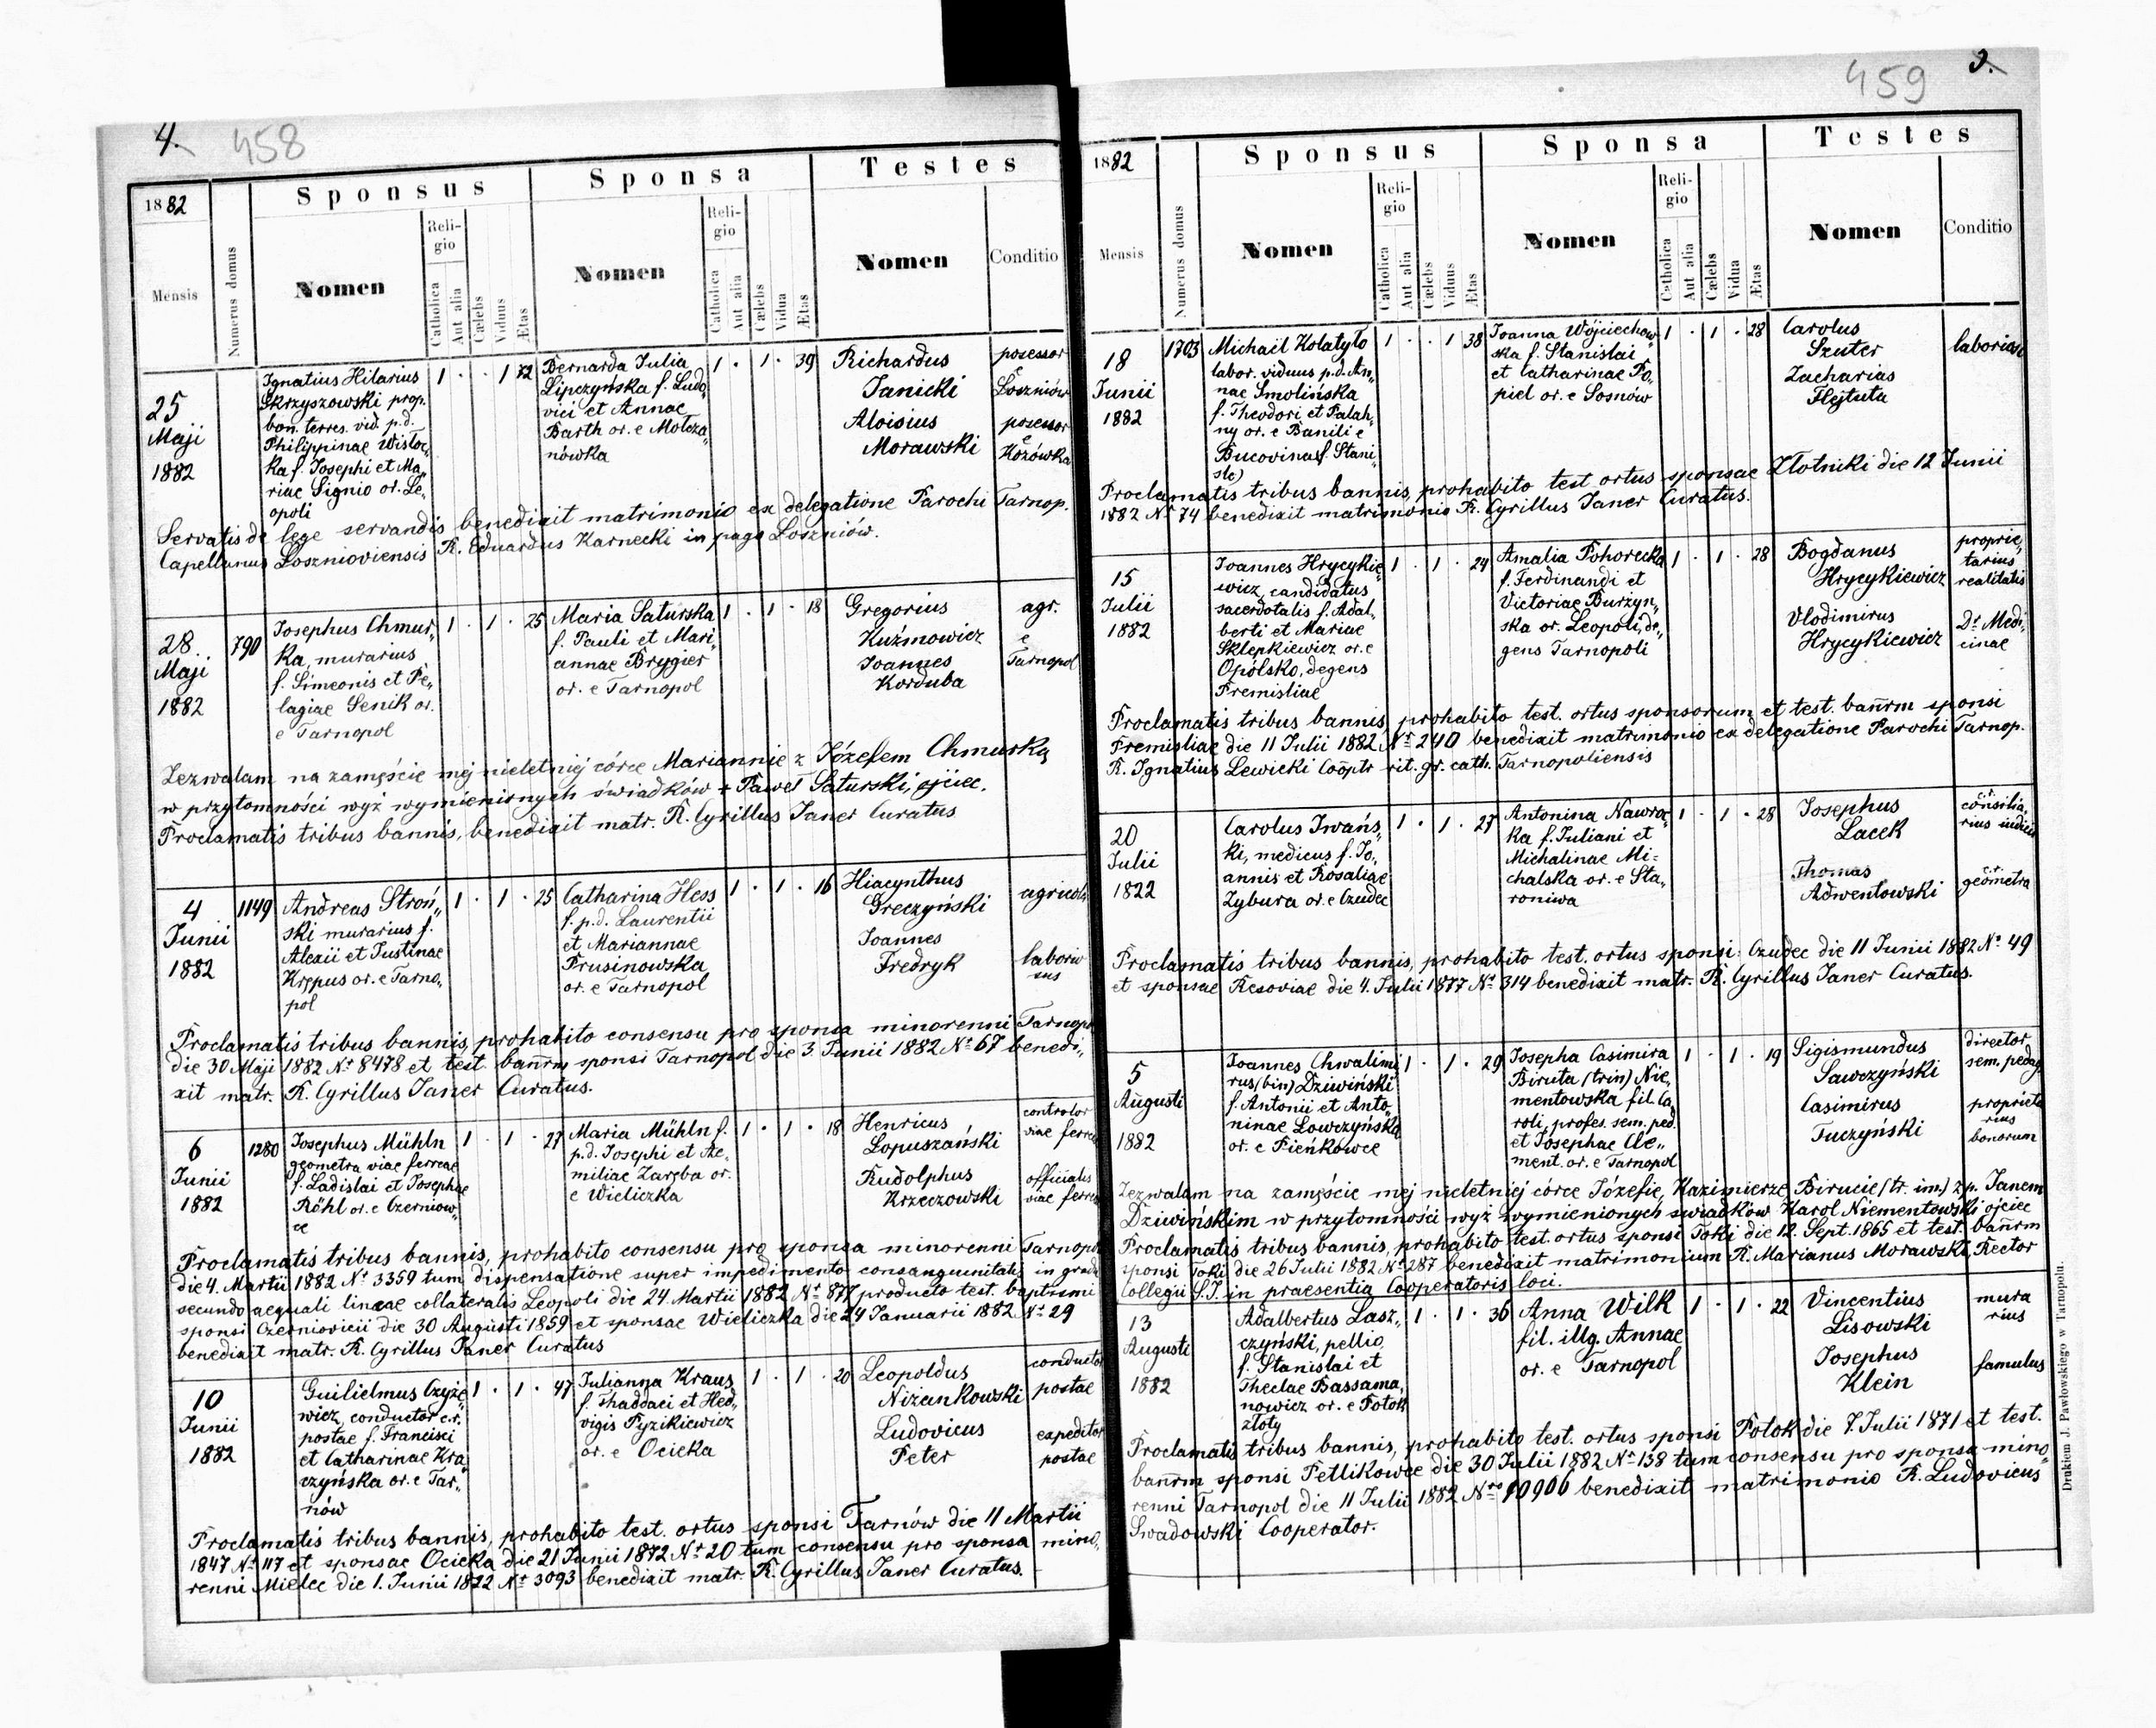 4. 458
1882
Sponsus
Sponsa
Testes
Mensis
Numerus domus
Nomen
Religio
Catholica
Aut alia
Cælebs
Viduus
Ætas
Nomen
Religio
Catholica
Aut alia
Cælebs
Vidua
Ætas
Nomen
Conditio
25
Maji
1882
Ignatius Hilarius
Skrzyszowski prop.
bon. terres. vid. p.d.
Philippinae Wisłoc„
ka f. Josephi et Ma„
riae Signio or. Le„
opoli
1 . . 1 72
Bernarda Julia
Lipczyńska f. Ludo„
vici et Annae
Barth or. e Mołcza„
nówka
1 . 1 . 39
Richardus
Janicki
Aloisius
Morawski
posessor
e
Łoszniów
posessor
e
Kozówka
Servatis de lege servandis benedixit matrimonio ex delegatione Parochi Tarnop.
Capellanus Łosznioviensis R. Eduardus Karnecki in pago Łoszniów.
28.
Maji
1882
790
Josephus Chmur„
ka, murarius
f. Simeonis et Pe„
lagiae Senik or.
e Tarnopol
1 . 1 . 25
Maria Saturska
f. Pauli et Mari„
annae Brygier
or. e Tarnopol
1 . 1 . 18
Gregorius
Kuźmowicz
Joannes
Korduba
agr.
e
Tarnopol
Zezwalam na zamęście mej nieletniej córce Mariannie z Józefem Chmurką
w przytomności wyż wymienionych świadków + Paweł Saturski, ojciec.
Proclamatis tribus bannis, benedixit matr. R. Cyrillus Janer Curatus
4
Junii
1882
1149
Andreas Stroń„
ski murarius f.
Alexii et Justinae
Krypus or. e Tarno„
pol
1 . 1 . 25
Catharina Hess
f. p.d. Laurentii
et Mariannae
Prusinowska
or. e Tarnopol
1 . 1 . 16
Hiacynthus
Greczyński
Joannes
Fredryk
agricola
laborio
sus
Proclamatis tribus bannis, prohabito consensu pro sponsa minorenni Tarnopol
die 30 Maji 1882 Nr 8478 et test. bañrm sponsi Tarnopol die 3. Junii 1882 Nr 67 benedi„
xit matr. R. Cyrillus Janer Curatus.
6
Junii
1882
1280
Josephus Mühln
geometra viae ferreae
f. Ladislai et Josephae
Röhl or. e Czerniow„
ce
1 . 1 . 27
Maria Mühln f.
p.d. Josephi et Ae„
miliae Zaręba or.
e Wieliczka
1 . 1 . 18
Henricus
Łopuszański
Rudolphus
Krzeczowski
controlor
viae ferreae
officialis
viae ferreae
Proclamatis tribus bannis, prohabito consensu pro sponsa minorenni Tarnopol
die 4. Martii 1882 Nr 3359 tum dispensatione super impedimento consanguinitatis in gradu
secundo aequali lineae collateralis Leopoli die 24. Martii 1882 Nr 877 producto test. baptismi
sponsi Czerniovicii die 30 Augusti 1859 et sponsae Wieliczka die 24 Januarii 1882 Nr 29
benedixit matr. R. Cyrillus Janer Curatus
10
Junii
1882
Guilielmus Czyże„
wicz, conductor c.r.
postae f. Francisci
et Catharinae Kra„
czyńska or. e Tar„
nów
1 . 1 . 47
Julianna Kraus
f. Thaddaei et Hed„
vigis Pyzikiewicz
or. e Ocieka
1 . 1 . 20
Leopoldus
Niżankowski
Ludovicus
Peter
conductor
postae
expeditor
postae
Proclamatis tribus bannis, prohabito test. ortus sponsi Tarnów die 11 Martii
1847 Nr 117 et sponsae Ocieka die 21 Junii 1872 Nr 20 tum consensu pro sponsa mino„
renni Mielec die 1. Junii 1822 Nr 3093 benedixit matr. R. Cyrillus Janer Curatus.
459
1882
Sponsus
Sponsa
Testes
Mensis
Numerus domus
Nomen
Religio
Catholica
Aut alia
Cælebs
Viduus
Ætas
Nomen
Religio
Catholica
Aut alia
Cælebs
Vidua
Ætas
Nomen
Conditio
18
Junii
1882
1703
Michael Kołatyło
labor. viduus p.d. An„
nae Smolińska
f. Theodori et Palah„
ny or. e Banili e
Bucovina (f. Stani„
slo)
1 . . 1 38
Joanna Wojciechow„
ska f. Stanislai
et Catharinae Po„
piel or. e Sosnów
1 . 1 . 28
Carolus
Szuter
Zacharias
Hejtuta
laboriosi
Proclamatis tribus bannis, prohabito test. ortus sponsae Złotniki die 12 Junii
1882 Nr 74 benedixit matrimonio R. Cyrillus Janer Curatus.
15
Julii
1882
Joannes Hrycykie„
wicz, candidatus
sacerdotalis f. Adal„
berti et Mariae
Sklepkiewicz or. e
Opólsko, degens
Premisliae
1 . 1 . 24
Amalia Pohorecka
f. Ferdinandi et
Victoriae Burzyn„
ska or. Leopoli, de„
gens Tarnopoli
1 . 1 . 28
Bogdanus
Hrycykiewicz
Vlodimirus
Hrycykiewicz
proprie„
tarius
realitatis
Dr Medi„
cinae
Proclamatis tribus bannis, prohabito test. ortus sponsorum et test. bañrm sponsi
Premisliae die 11 Julii 1882 Nr 240 benedixit matrimonio ex delegatione Parochi Tarnop.
R. Ignatius Lewicki Cooptr rit. gr. cath. Tarnopoliensis
20
Julii
1822
Carolus Iwańs„
ki, medicus f. Jo„
annis et Rosaliae
Zybura or. e Czudec
1 . 1 . 27
Antonina Nawroc„
ka f. Juliani et
Michalinae Mi=
chalska or. e Sta„
roniwa
1 . 1 . 28
Josephus
Lacek
Thomas
Adwentowski
c.r.
consilia„
rius iudicii
c.r.
geometra
Proclamatis tribus bannis, prohabito test. ortus sponsi: Czudec die 11 Junii 1882 Nr 49
et sponsae Resoviae die 4. Julii 1877 Nr 314 benedixit matr. R. Cyrillus Janer Curatus.
5
Augusti
1882
Joannes Chwalimi
rus (bin) Dziwiński
f. Antonii et Anto„
ninae Łowczyńska
or. e Pieńkowce
1 . 1 . 29
Josepha Casimira
Biruta (trin) Nie„
mentowska fil. Ca„
roli, profes. sem. ped.
et Josephae Cle„
ment. or. e Tarnopol
1 . 1 . 19
Sigismundus
Sawczyński
Casimirus
Tuczyński
director
sem. pedag.
proprieta
rius
bonorum
Zezwalam na zamęście mej nieletniej córce Józefie, Kazimierze, Birucie (tr. im.) z p. Janem
Dziwińskim w przytomności wyż wymienionych świadków Karol Niementowski ojciec
Proclamatis tribus bannis, prohabito test. ortus sponsi Toki die 12. Sept. 1865 et test. bañrm
sponsi Toki die 26 Julii 1882 Nr 287 benedixit matrimonium R. Marianus Morawski, Rector
Collegii S.J. in praesentia Cooperatoris loci.
13
Augusti
1882
Adalbertus Lasz„
czyński, pellio
f. Stanislai et
Theclae Bassama„
nowicz or. e Potok
złoty
1 . 1 . 36
Anna Wilk
fil. illg. Annae
or. e Tarnopol
1 . 1 . 22
Vincentius
Lisowski
Josephus
Klein
mura
rius
famulus
Proclamatis tribus bannis, prohabito test. ortus sponsi Potok die 7. Julii 1871 et test.
bañrm sponsi Petlikowce die 30 Julii 1882 Nr 138 tum consensu pro sponsa mino„
renni Tarnopol die 11 Julii 1882 Nro 10906 benedixit matrimonio R. Ludovicus
Swadowski Cooperator.
Drukiem J. Pawłowskiego w Tarnopolu.